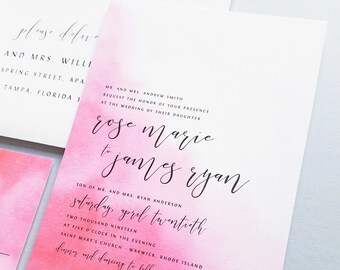 please deliver
AND MRS. WILLI
SPRING STREET, APA
TAMPA, FLORIDA
MR. AND MRS. ANDREW SMITH
REQUEST THE HONOR OF YOUR PRESENCE
AT THE WEDDING OF THEIR DAUGHTER
rose marie
to
james ryan
SON OF MR. AND MRS. RYAN ANDERSON
saturday, april twentieth
TWO THOUSAND NINETEEN
AT FIVE O'CLOCK IN THE EVENING
SAINT MARY'S CHURCH - WARWICK, RHODE ISLAND
dinner and dancing to